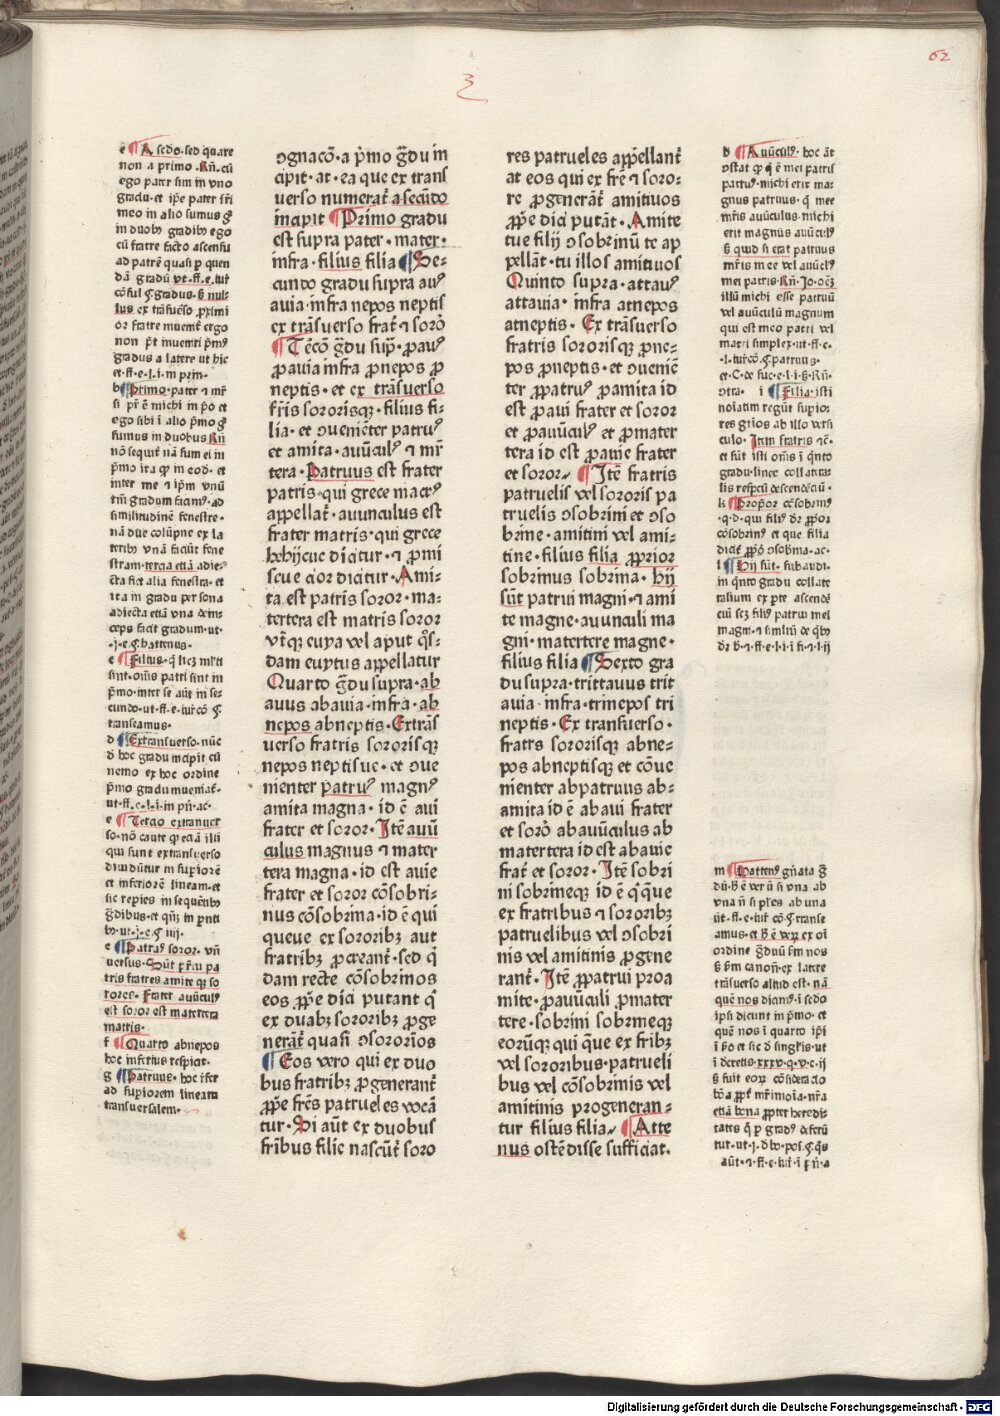 62
3
e ¶ A scdo. sed quare
non a primo. Rñ. cū
ego pater sim in vno
gradu. et ip̄e pater fr̄i
meo in alio sumus ḡ
in duob9 gradib9 ego
cū fratre facto ascensu
ad patrē quasi p quen
dā gradū vt. ff. e. iur̄
cōsul. §. gradus. § nul-
lus ex trāsuerso proximi
or fratre inuenit̄ ergo
non p̄t inueniri prim9
gradus a latere ut hic
et. ff. e. l. i. in prin.
b ¶ Primo. pater ⁊ mr̄
si pr̄ ē michi in p̄o et
ego sibi i alio pmo ḡ
sumus in duobus Rñ
nō sequit̄ nā sum ei in
p̄mo ita qp in eod. et
inter me ⁊ ip̄m vnū
tm̄ gradum facim9. ad
similitudinē fenestre.
nā due colūpne ex la
terib9 vnā faciūt fene
stram. tercia etiā adie-
cta fiet alia fenestra. et
ita in gradu persona
adiecta etiā vna dein-
ceps facit gradum. ut.
j. e. §. hattenus.
c ¶ Filius. q̄ licz mr̄ti
sint. om̄s patri sint in
p̄mo. inter se aūt in se-
cundo. ut. ff. e. iur̄ cō. §
transeamus.
d ¶ Extransuerso. nūc
d hoc gradu incipit cū
nemo ex hoc ordine
p̄mo gradu inueniat̄.
ut. ff. e. l. i. in pn̄. ac.
e ¶ Tercio extranuer
so. nō caute qp eciā illi
qui sunt extransuerso
diuidūtur in supiorē
et inferiorē lineam. et
sic repies in sequētib9
ḡdibus. et qn̄z in pn̄ti
b9. ut. j. e. §. iiij.
e ¶ Patru9 soror. vn̄
uersus. Sūt pr̄ru pa
tris fratres amite q̄z so
rores. Frater auūcul9
est soror est matertera
matris.
f ¶ Quarto abnepos
hoc inferius respiciat.
g ¶ Patruus. hoc refer
ad supiorem lineam
transuersalem.
ↄgnacō. a p̄mo ḡdu in
cipit. at. ea que ex trans
uerso numerat̄ a secūdo
incipit ¶ Primo gradu
est supra pater. mater.
infra. filius filia ¶ Se-
cundo gradu supra au9
auia. infra nepos neptis
ex trāsuerso frat̄ ⁊ sorō
¶ Tēcō ḡdu sup̄. pau9
pauia infra pnepos p
neptis. et ex trāsuerso
fr̄is sororisqz. filius fi-
lia. et ↄueniēter patru9
et amita. auūcul9 ⁊ mr̄
tera. Patruus est frater
patris. qui grece macr9
appellat̄. auunculus est
frater matris. qui grece
hehijcuc dicitur. ⁊ pmi
scue cior dicitur. Ami-
ta est patris soror. ma-
tertera est matris soror
vt̄qz cuya vel aput q̄s-
dam cuytus appellatur
Quarto ḡdu supra. ab
auus abauia. infra. ab
nepos abneptis. Extrās
uerso fratris sororisqz
nepos neptisue. et ↄue
nienter patru9 magn9
amita magna. id ē aui
frater et soror. Itē auū
culus magnus ⁊ mater
tera magna. id est auie
frater et soror cōsobri-
nus cōsobrina. id ē qui
queue ex sororibz aut
fratribz pcreant̄. sed q̄
dam recte cōsobrinos
eos pp̄e dici putant q̄
ex duabz sororibz pge
nerāt̄ quasi ↄsororios
¶ Eos vero qui ex duo
bus fratribz pgenerant̄
pp̄e fr̄es patrueles vocā
tur. Si aūt ex duobus
fr̄ibus filie nascūt̄ soro
res patrueles app̄ellant̄
at eos qui ex fr̄e ⁊ soro-
re pgenerāt̄ amitiuos
pp̄e dici putāt. Amite
tue filij ↄsobrinū te ap
pellāt. tu illos amitiuos
Quinto supra. attau9
attauia. infra atnepos
atneptis. Ex trāsuerso
fratris sororisqz pne-
pos pneptis. et ↄueniē
ter ppatru9 pamita id
est paui frater et soror
et pauūcul9 et pmater
tera id est pauie frater
et soror. ¶ Itē fratris
patruelis vel sororis pa
truelis ↄsobrini et ↄso
brine. amitini vel ami-
tine. filius filia pprior
sobrinus sobrina. hij
sūt patrui magni. ⁊ ami
te magne. auunculi ma
gni. matertere magne.
filius filia ¶ Sexto gra
du supra. trittauus trit
auia. infra. trinepos tri
neptis. Ex transuerso.
fratrs sororisqz abne-
pos abneptisqz et cōue
nienter abpatruus ab-
amita id ē abaui frater
et sorō abauūculus ab
matertera id est abauie
frat̄ et soror. Itē sobri
ni sobrineqz id ē q̄ que
ex fratribus ⁊ sororibz
patruelibus vel ↄsobri
nis vel amitinis pgene
rant̄. Itē ppatrui proa
mite. pauūculi pmater
tere. sobrini sobrineqz
eorūqz qui que ex fribz
vel sororibus. patrueli
bus vel cōsobrinis vel
amitinis progeneran-
tur filius filia. ¶ Atte
nus ostēdisse sufficiat.
h ¶ Auūcul9. hoc āt
ↄstat qp q̄ ē mei patris
patru9. michi erit ma-
gnus patruus. q̄ mee
mr̄is auūculus. michi
erit magnus auūculus
§ quid si erat patruus
mr̄is mee vel auūcl9
mei patris. Rñ. Jo. ↄcz
illū michi esse patruū
vel auūculū magnum
qui est meo patri vel
matri simplex. ut. ff. e.
l. iur̄ cō. §. patruus.
et. C. de suc. e. l. i. §. Rñ.
ↄtra. i ¶ Filia. isti
noīatim regūt supio-
res gr̄ios ab illo versi
culo. Item fratris ⁊c̄.
et sūt isti om̄s i q̄nto
gradu. linee collatera-
lis respcū descendēciū.
k ¶ Propior cōsobrin9
q. d. qui fili9 dr̄ ppor
cōsobrin9 et que filia
dicat̄ pp̄o ↄsobrina. ac.
l ¶ Hij sūt. subaudi.
in q̄nto gradu collate
ralium ex pte ascendē
ciū scz fili9 patrui mei
magni. ⁊ simlitr̄ de q̄b9
dr̄ h. ⁊. ff. e. l. i. i fi. ⁊ l. ij
m ¶ Hatten9 gn̄ata ḡ
dū. h ē ver ū si vna ab
vna n̄ si pl̄es ab una
ut. ff. e. iur̄ cō. §. transe
amus. et h ē vez ex oī
ordine ḡduū fm nos
§ fm canon̄. ex latere
trāsuerso aliud est. nā
quē nos dicim9. i scdo
ipsi dicunt in p̄mo. et
quē nos i quarto ip̄i
i scdo et sic d singlis. ut
i decretis. xxxv. q. v. c. ij
§ fuit eoz cōsideracio
bōa ppt̄ mr̄imōia. nr̄a
etiā bona ppter heredi-
tates q̄ p grad9 deferū
tur. ut. i. d bo. pos. §. q̄s
aūt. ⁊. ff. e. iur̄. i pn̄. a
Digitalisierung gefördert durch die Deutsche Forschungsgemeinschaft - DFG